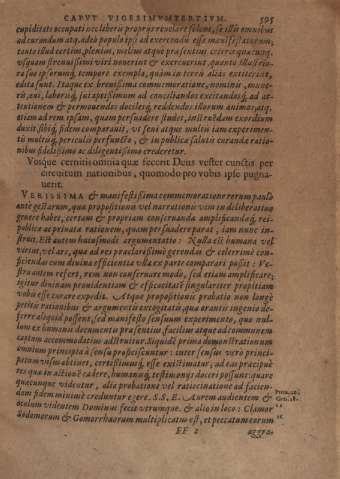 CAPVT VIGESIMVMTERTIVM. 595
cupiditate occupati
ad curandum atq; adeo populo ipsi ad exercendū esse manifestatorum,
tanto illud certius, plenius, melius atque præsentius
vsquam strenuissimi viri nouerint & exercuerint, quanto illustrio-
ra sua ipsorumq; tempore exempla, quàm in terris alias extiterint,
edita sunt. Itaque ex breuissima commemoratione, nominis, mune-
ris, aui, laborisq; suo aptissimum ad conciliandos excitandosq; ad at-
tentionem & permouendos docilesq; reddendos illorum animos, atq;
etiam ad rem ipsam, quam persuadere studet, instruēdam exordium
duxit, sibiq; fidem comparauit, vt seni atque multis iam experimen-
tis multisq; periculis perfuncto, & in publica salutis curanda ratio-
nibus fidelissimo ac diligentissimo crederetur.
Vosque cernitis omnia quæ fecerit Deus vester cunctis per
circuitum nationibus, quomodo pro vobis ipse pugna-
uerit.
VERISSIMA & manifestissima commemoratione rerum paulò
ante gestarum, qua propositionis vel narrationis vim in deliberatiuo
genere habet, certam & propriam conseruanda amplificandaq; rei-
publica ac priuata rationem, quam persuadere parat, iam nunc in-
struit. Est autem huiusmodi argumentatio: Nulla est humana vel
vis vel ars, qua ad res praclarissimè gerendas & celerrimè con-
ficiendas cum diuina efficientia vlla ex parte comparari possit: Ve-
stra autem refert, rem non conseruare modo, sed etiam amplificare;
igitur diuinam prouidentiam & efficacitatē singulariter propitiam
vobis esse curare expedit. Atque propositionis probatio non longè
petitis rationibus & argumentis excogitatis, qua
ferre alioqui possent, sed manifesto sensuum experimento, qua nul-
lum ex humanis documentis præsentius, facilius atque ad communem
captum accommodatius adstruitur. Siquidē prima demonstrationum
omnium principia à sensu proficiscuntur: inter sensus verò princi-
patum visus obtinet, certissimusq; esse existimatur, ad eas præcipuè
res qua in actione cadere, humanisq; testimonijs doceri possunt: quare
quacumque videntur, alia probatione vel ratiocinatione ad facien-
dam fidem minimè creduntur egere. S. S. E. Aurem audientem &
oculum videntem Dominus fecit vtrumque. & alio in loco: Clamor
Sodomorum & Gomorrhaorum multiplicatus est, et peccatum eorum
FF 2